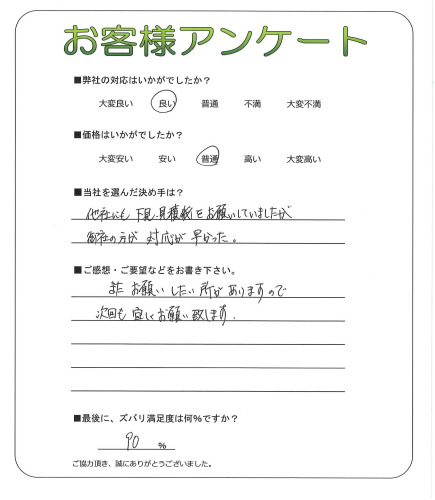 お客様アンケート
■弊社の対応はいかがでしたか？
大変良い 良い 普通 不満 大変不満
■価格はいかがでしたか？
大変安い 安い 普通 高い 大変高い
■当社を選んだ決め手は？
他社にも下見、見積依頼をお願いしていましたが
御社の方が対応が早かった。
■ご感想・ご要望などをお書き下さい。
またお願いしたい所がありますので
次回も宜しくお願い致します.
■最後に、ズバリ満足度は何％ですか？
90 ％
ご協力頂き、誠にありがとうございました。